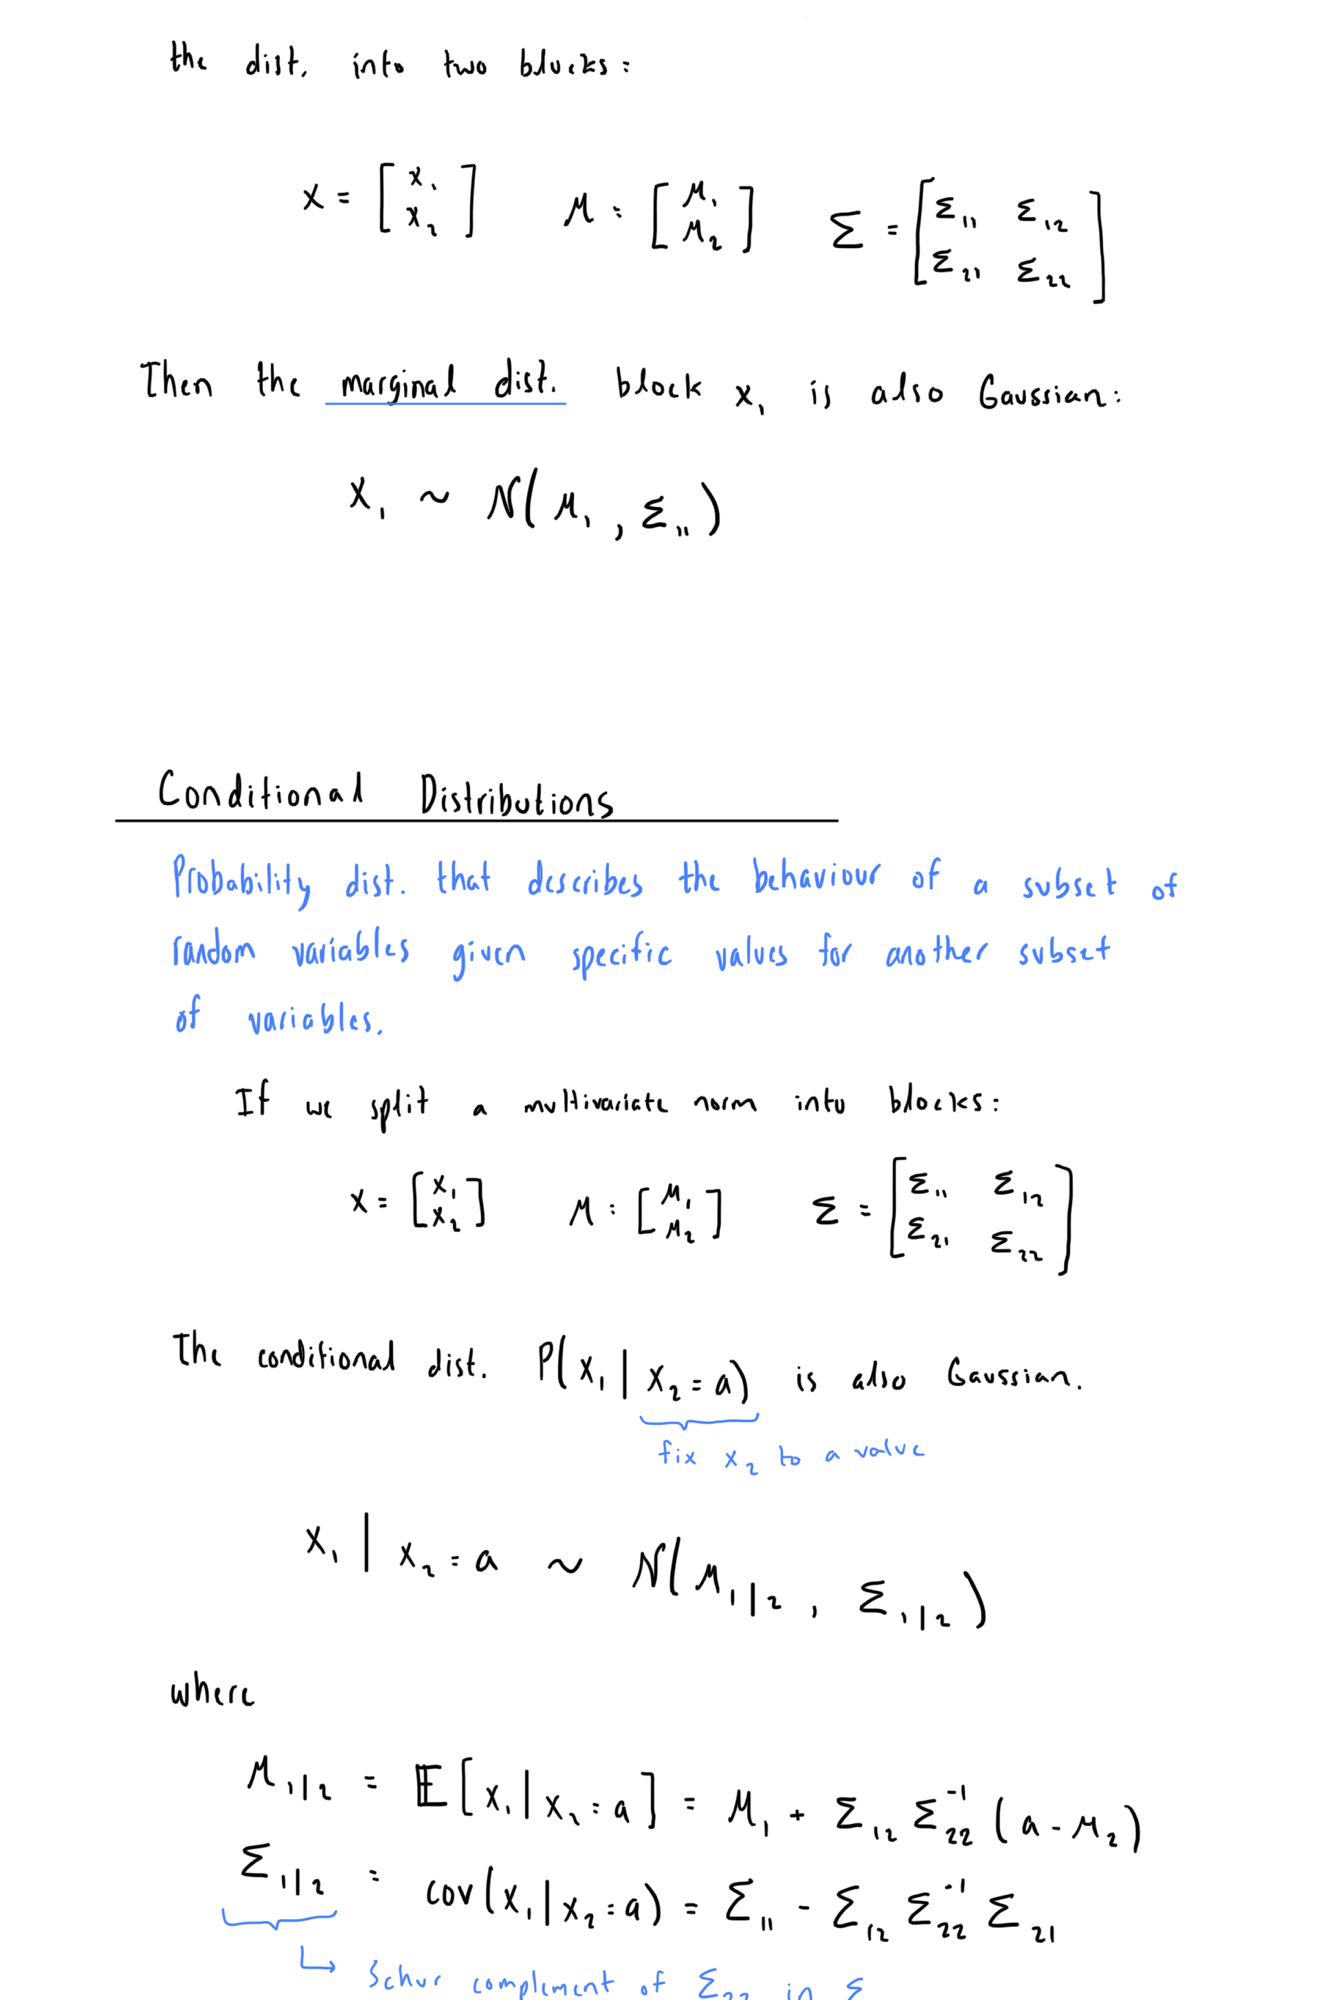 the dist. into two blocks:
X = [ x₁ x₂ ] μ = [ μ₁ μ₂ ] Σ = [ Σ₁₁ Σ₁₂ Σ₂₁ Σ₂₂ ]
Then the marginal dist. block x₁ is also Gaussian:
X₁ ~ N( μ₁ , Σ₁₁ )
Conditional Distributions
Probability dist. that describes the behaviour of a subset of
random variables given specific values for another subset
of variables.
If we split a multivariate norm into blocks:
X = [ x₁ x₂ ] μ = [ μ₁ μ₂ ] Σ = [ Σ₁₁ Σ₁₂ Σ₂₁ Σ₂₂ ]
The conditional dist. P( x₁ | x₂ = a ) is also Gaussian.
fix x₂ to a value
x₁ | x₂ = a ~ N( μ₁|₂ , Σ₁|₂ )
where
μ₁|₂ = 𝔼[ x₁ | x₂ = a ] = μ₁ + Σ₁₂ Σ₂₂⁻¹ ( a - μ₂ )
Σ₁|₂ = cov( x₁ | x₂ = a ) = Σ₁₁ - Σ₁₂ Σ₂₂⁻¹ Σ₂₁
↳ Schur complement of Σ₂₂ in Σ